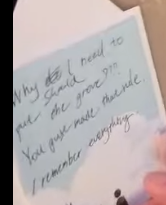 Why do I need to
should
the grove???
You guys made that rule.
I remember everything